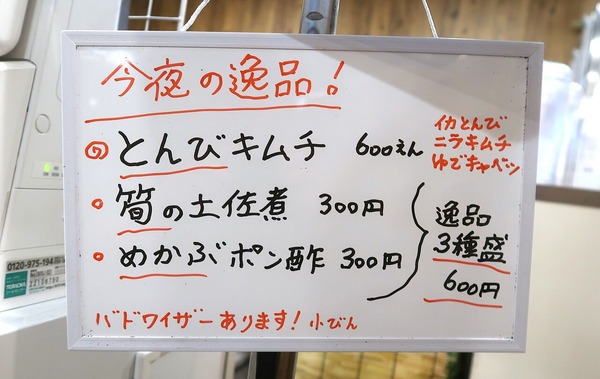 今夜の逸品!
とんびキムチ 600えん
イカとんび
ニラキムチ
ゆでキャベツ
筍の土佐煮 300円
めかぶポン酢 300円
逸品
3種盛
600円
バドワイザーあります! 小びん
0120-975-194